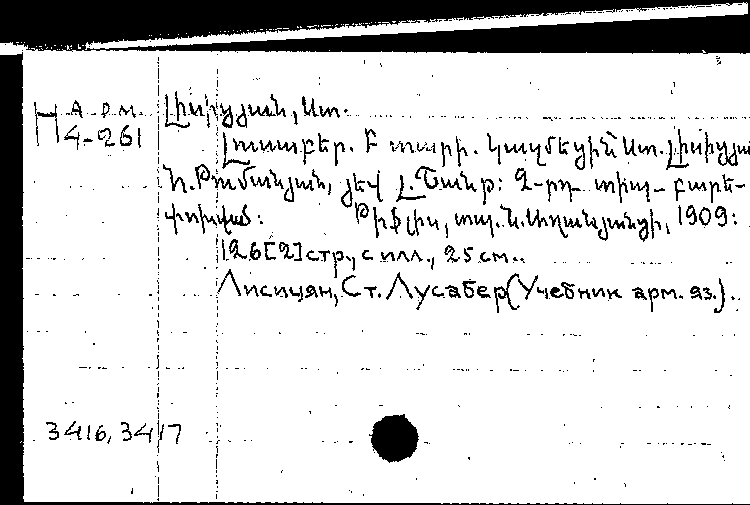 Арм.
H 4-261
Լիսիցյան, Ստ.
Լուսաբեր. Բ տարի. Կազմեցին՝ Ստ. Լիսիցյա
Հ. Թումանյան, յեվ Լ. Շանթ: 2-րդ տիպ- բարե-
փոխված: Թիֆլիս, տպ. Ն. Աղանյանցի, 1909:
126[2] стр., с илл., 25 см..
Лисицян, Ст. Лусабер (Учебник арм. яз.).
3416, 3417